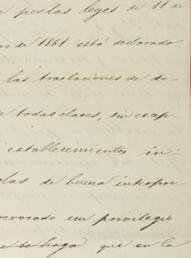 por las leyes de 11 de
ro de 1861 está declarado
las traslaciones de do-
e todas clases, sin escep-
establecimientos in-
las de buena interpre-
rovocado un privilegio
se haga que en la